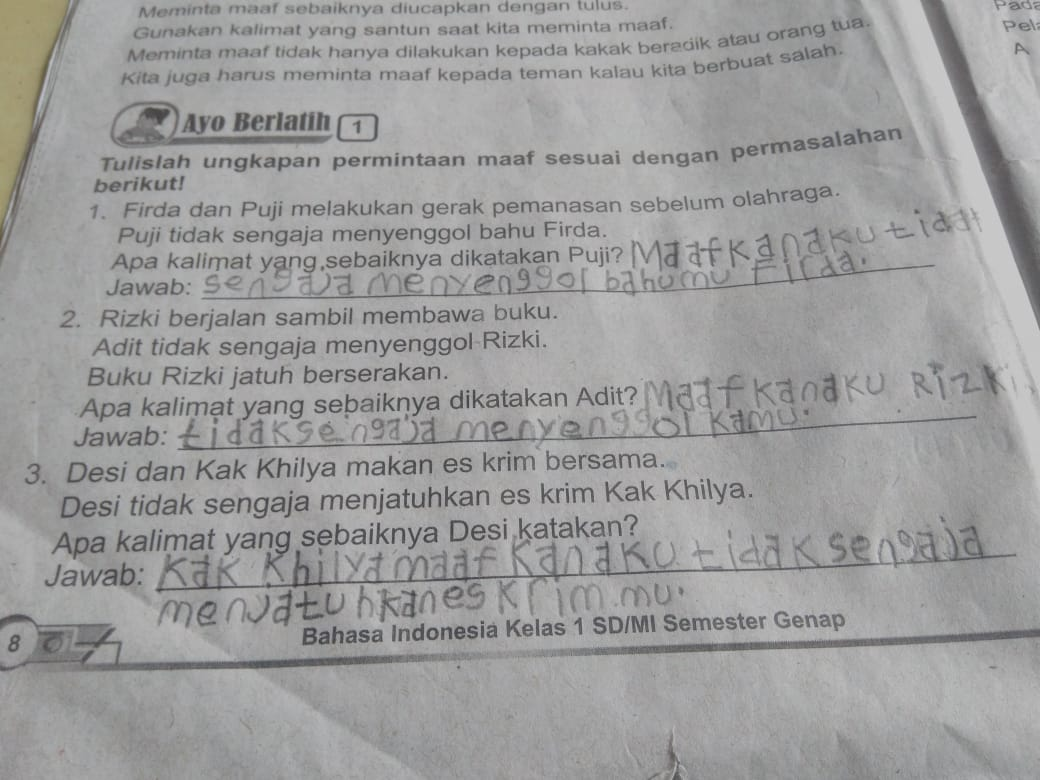 Meminta maaf sebaiknya diucapkan dengan tulus.
Gunakan kalimat yang santun saat kita meminta maaf.
Meminta maaf tidak hanya dilakukan kepada kakak beradik atau orang tua.
Kita juga harus meminta maaf kepada teman kalau kita berbuat salah.
Pada
Pel
A
Ayo Berlatih 1
Tulislah ungkapan permintaan maaf sesuai dengan permasalahan
berikut!
1. Firda dan Puji melakukan gerak pemanasan sebelum olahraga.
Puji tidak sengaja menyenggol bahu Firda.
Apa kalimat yang sebaiknya dikatakan Puji? Maafkanaku tidak
Jawab: sengaja menyenggol bahumu Firda.
2. Rizki berjalan sambil membawa buku.
Adit tidak sengaja menyenggol Rizki.
Buku Rizki jatuh berserakan.
Apa kalimat yang sebaiknya dikatakan Adit? Maafkanaku Rizki
Jawab: tidak sengaja menyenggol kamu.
3. Desi dan Kak Khilya makan es krim bersama.
Desi tidak sengaja menjatuhkan es krim Kak Khilya.
Apa kalimat yang sebaiknya Desi katakan?
Jawab: Kak Khilya maaf kanaku tidak sengaja
menjatuhkanes krim.mu.
8 Bahasa Indonesia Kelas 1 SD/MI Semester Genap